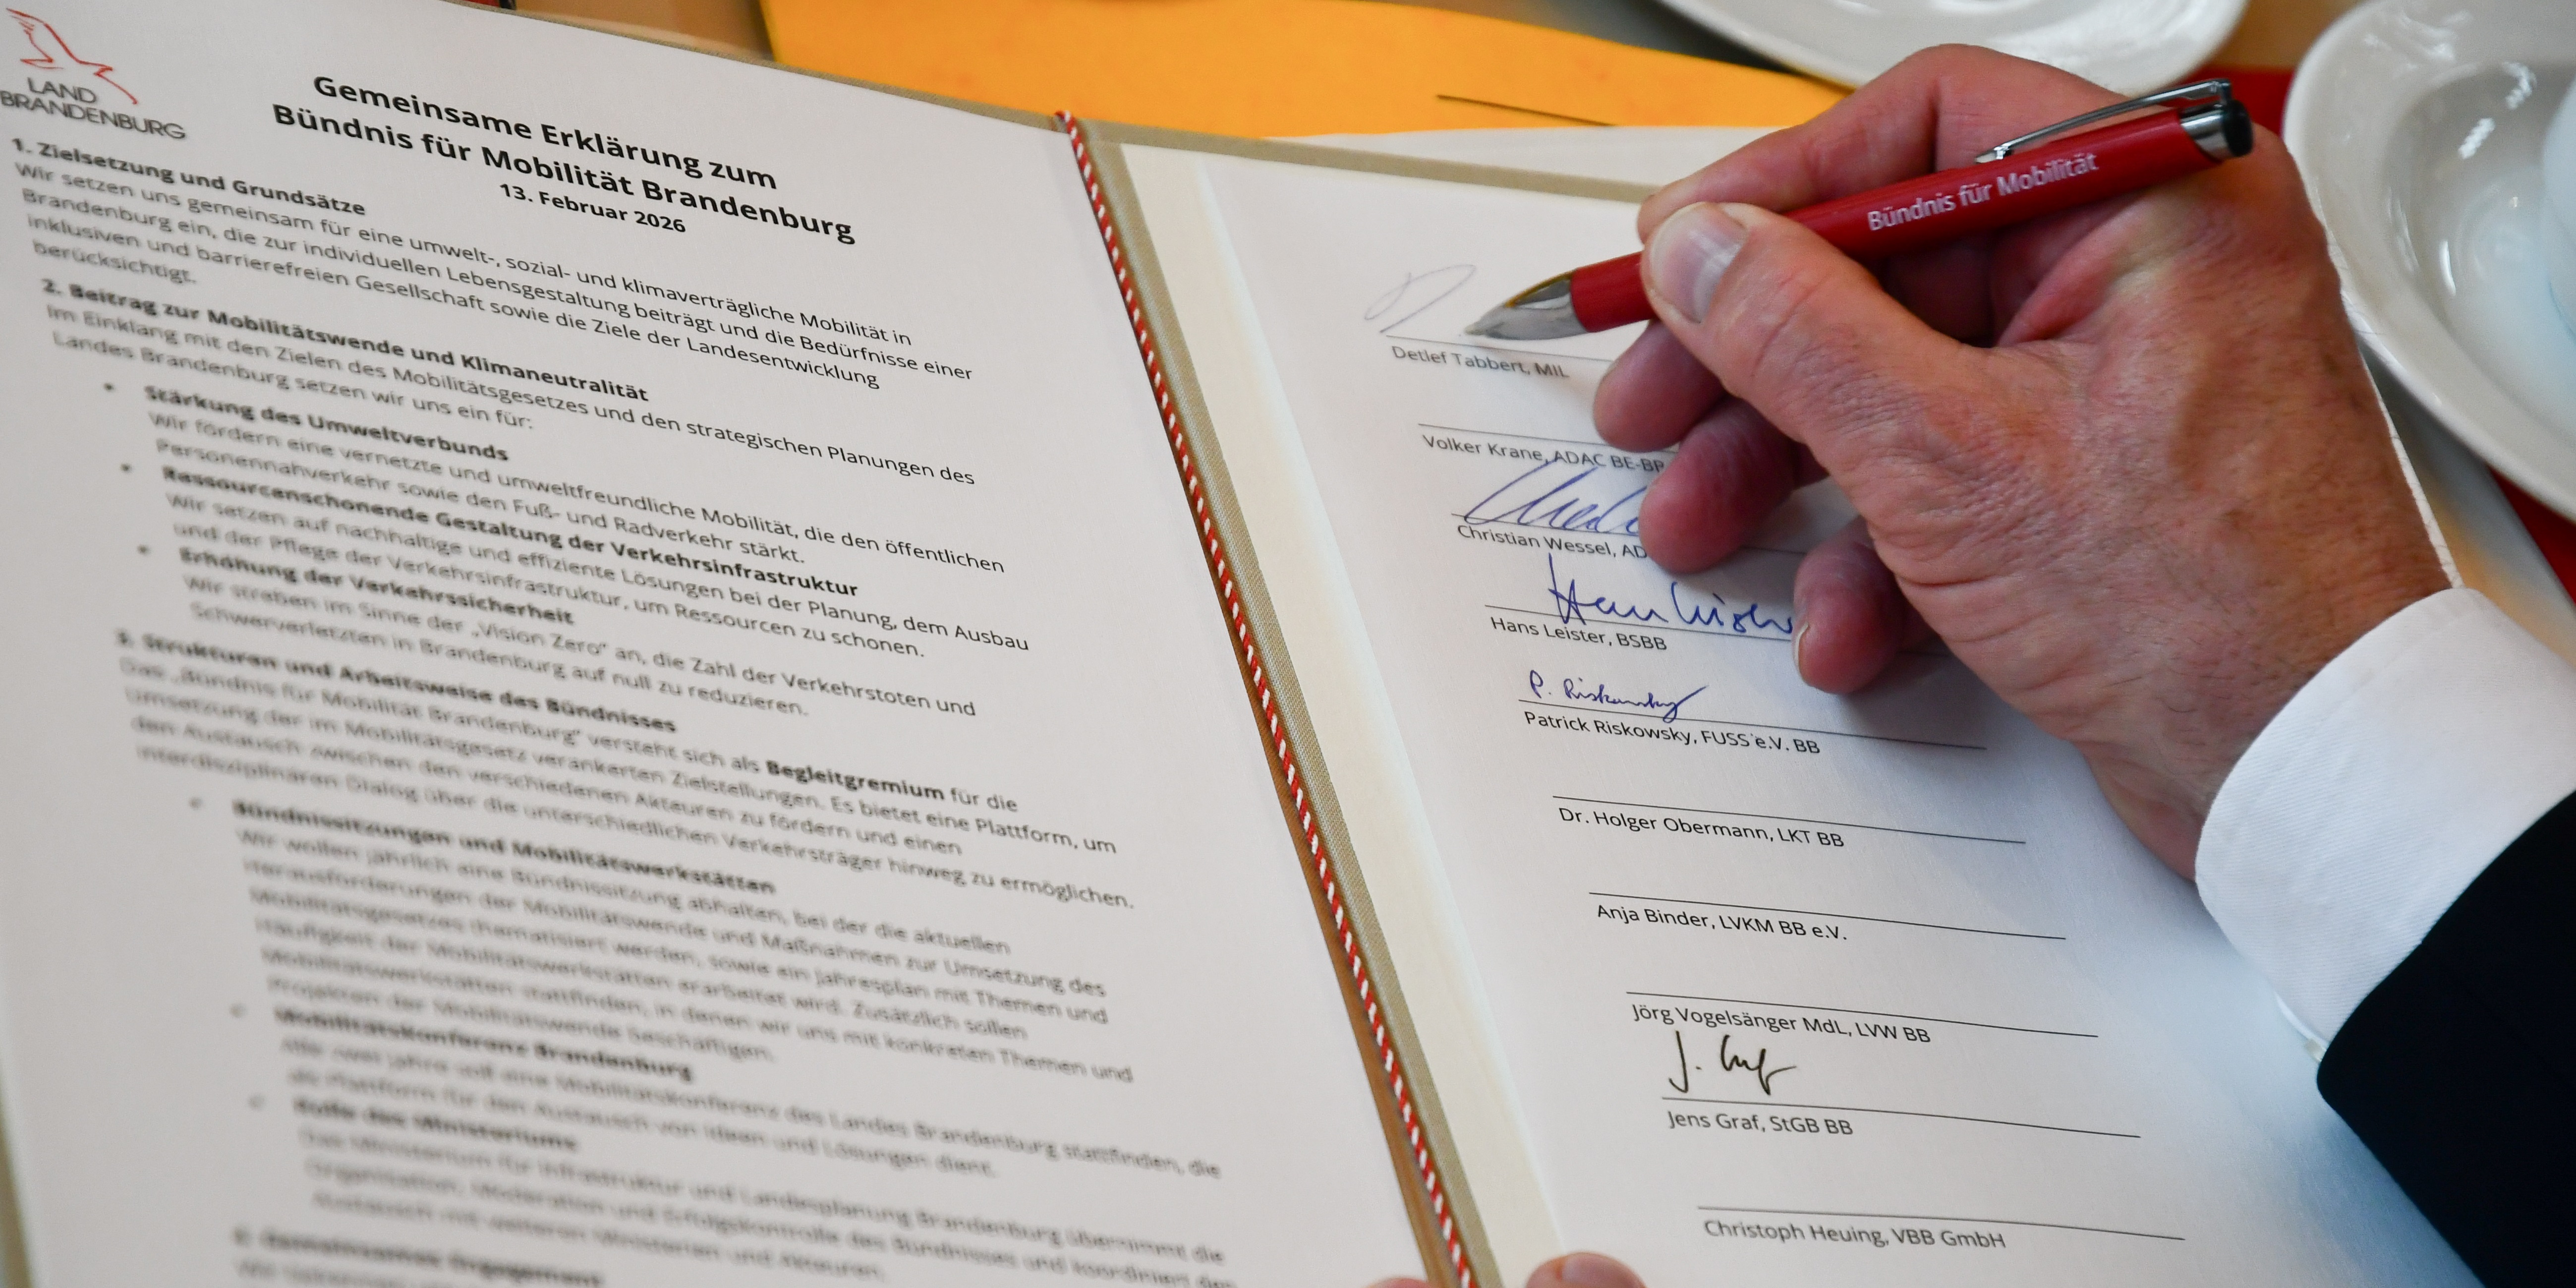 LAND
BRANDENBURG
Gemeinsame Erklärung zum
Bündnis für Mobilität Brandenburg
13. Februar 2026
1. Zielsetzung und Grundsätze
Wir setzen uns gemeinsam für eine umwelt-, sozial- und klimaverträgliche Mobilität in
Brandenburg ein, die zur individuellen Lebensgestaltung beiträgt und die Bedürfnisse einer
inklusiven und barrierefreien Gesellschaft sowie die Ziele der Landesentwicklung
berücksichtigt.
2. Beitrag zur Mobilitätswende und Klimaneutralität
Im Einklang mit den Zielen des Mobilitätsgesetzes und den strategischen Planungen des
Landes Brandenburg setzen wir uns ein für:
• Stärkung des Umweltverbunds
Wir fördern eine vernetzte und umweltfreundliche Mobilität, die den öffentlichen
Personennahverkehr sowie den Fuß- und Radverkehr stärkt.
• Ressourcenschonende Gestaltung der Verkehrsinfrastruktur
Wir setzen auf nachhaltige und effiziente Lösungen bei der Planung, dem Ausbau
und der Pflege der Verkehrsinfrastruktur, um Ressourcen zu schonen.
• Erhöhung der Verkehrssicherheit
Wir streben im Sinne der „Vision Zero“ an, die Zahl der Verkehrstoten und
Schwerverletzten in Brandenburg auf null zu reduzieren.
3. Strukturen und Arbeitsweise des Bündnisses
Das „Bündnis für Mobilität Brandenburg“ versteht sich als Begleitgremium für die
Umsetzung der im Mobilitätsgesetz verankerten Zielstellungen. Es bietet eine Plattform, um
den Austausch zwischen den verschiedenen Akteuren zu fördern und einen
interdisziplinären Dialog über die unterschiedlichen Verkehrsträger hinweg zu ermöglichen.
Bündnissitzungen und Mobilitätswerkstätten
Wir wollen jährlich eine Bündnissitzung abhalten, bei der die aktuellen
Herausforderungen der Mobilitätswende und Maßnahmen zur Umsetzung des
Mobilitätsgesetzes thematisiert werden, sowie ein Jahresplan mit Themen und
Häufigkeit der Mobilitätswerkstätten erarbeitet wird. Zusätzlich sollen
Mobilitätswerkstätten stattfinden, in denen wir uns mit konkreten Themen und
Projekten der Mobilitätswende beschäftigen.
Mobilitätskonferenz Brandenburg
Alle zwei Jahre soll eine Mobilitätskonferenz des Landes Brandenburg stattfinden, die
als Plattform für den Austausch von Ideen und Lösungen dient.
Rolle des Ministeriums
Das Ministerium für Infrastruktur und Landesplanung Brandenburg übernimmt die
Organisation, Moderation und Erfolgskontrolle des Bündnisses und koordiniert den
Austausch mit weiteren Ministerien und Akteuren.
Gemeinsames Engagement
Bündnis für Mobilität
Detlef Tabbert, MIL
Volker Krane, ADAC BE-BB
Christian Wessel, AD
Hans Leister, BSBB
P. Riskowsky
Patrick Riskowsky, FUSS e.V. BB
Dr. Holger Obermann, LKT BB
Anja Binder, LVKM BB e.V.
Jörg Vogelsänger MdL, LVW BB
J. Graf
Jens Graf, StGB BB
Christoph Heuing, VBB GmbH